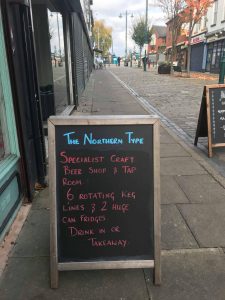 The Northern Type
Specialist Craft
Beer Shop & Tap
Room.
6 Rotating Keg
Lines & 2 Huge
Can Fridges.
Drink in or
Takeaway.